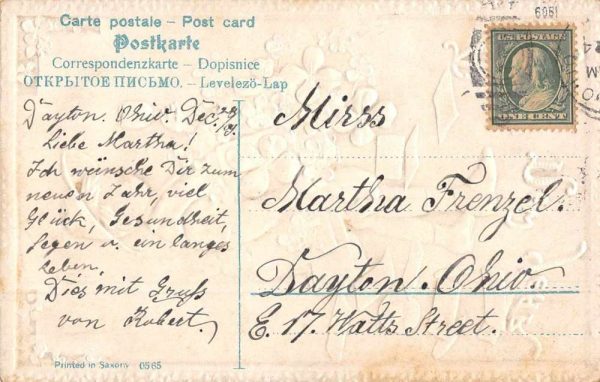 Carte postale – Post card
Postkarte
Correspondenzkarte – Dopisnice
ОТКРЫТОЕ ПИСЬМО. – Levelező-Lap
1909
U.S. POSTAGE
ONE CENT
Dayton. Ohio. Dec.
Liebe Martha!
Ich wünsche Dir zum
neuen Jahr, viel
Glück, Gesundheit,
Segen u. ein langes
leben.
Dies mit Gruß
von Robert.
Mirss
Martha Frenzel.
Dayton. Ohio.
E. 17. Watts Street.
Printed in Saxony 0585